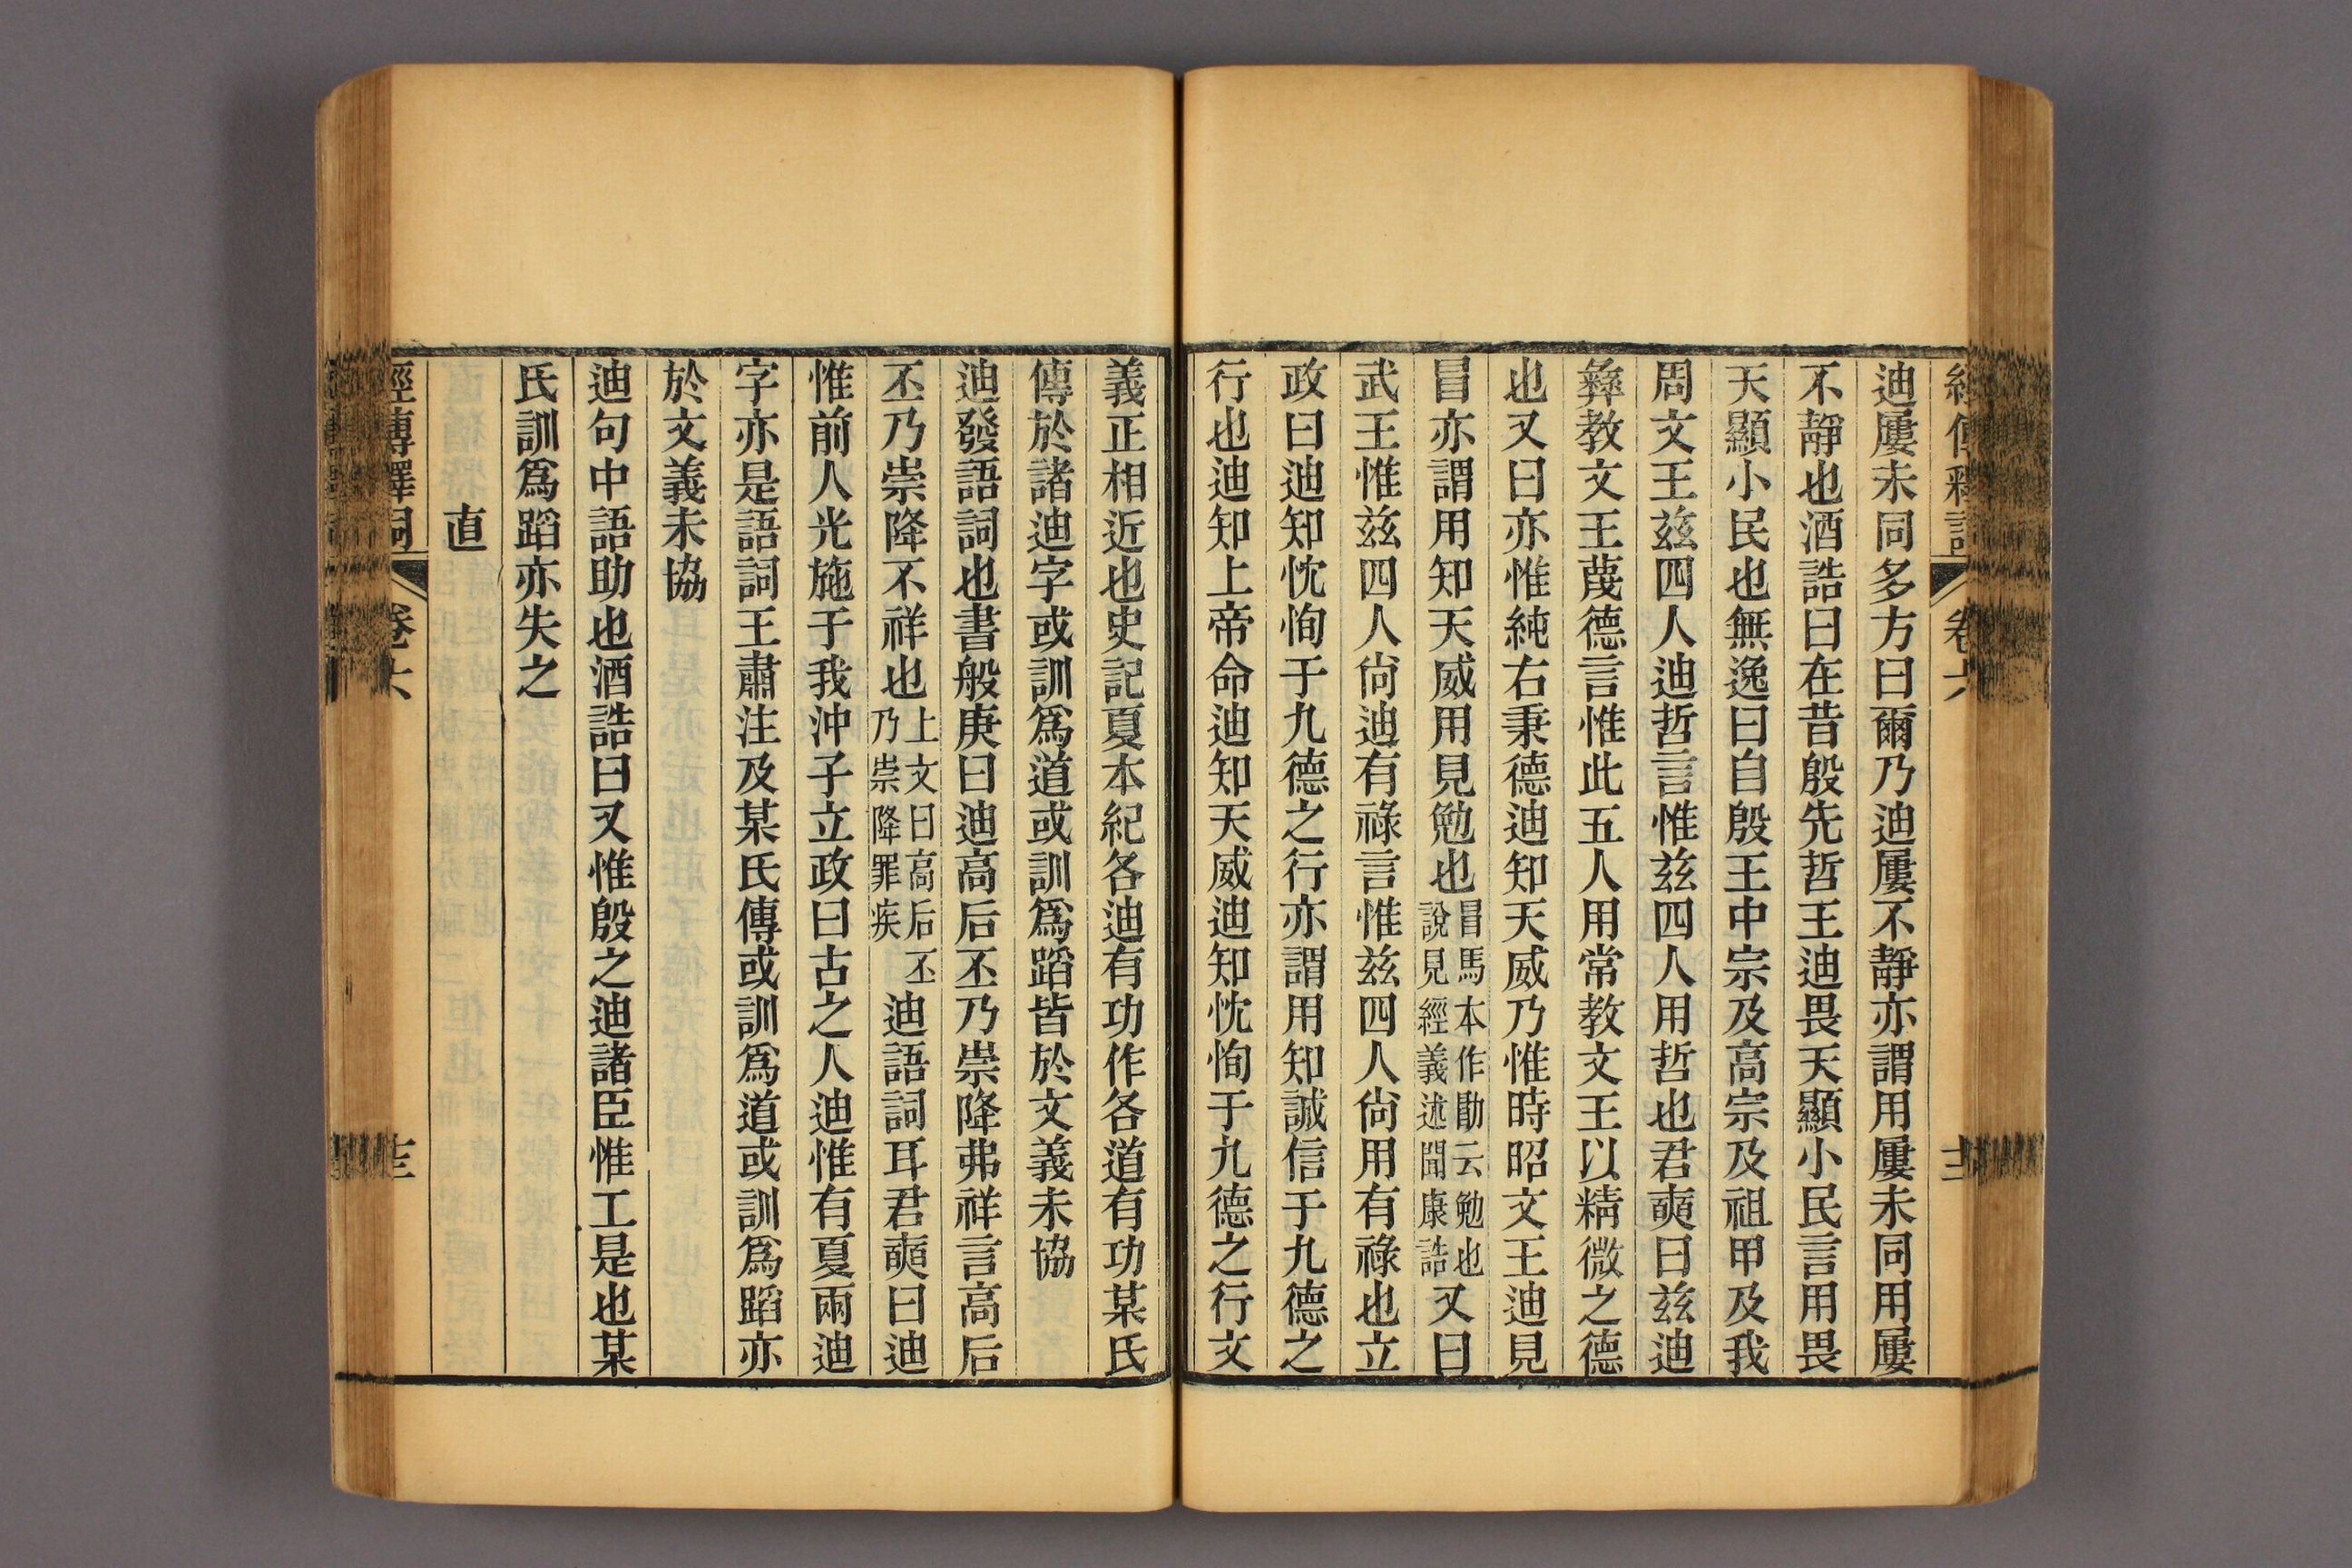 經傳釋詞 卷六 十二
迪屢未同多方曰爾乃迪屢不靜亦謂用屢未同用屢
不靜也酒誥曰在昔殷先哲王迪畏天顯小民言用畏
天顯小民也無逸曰自殷王中宗及高宗及祖甲及我
周文王茲四人迪哲言惟茲四人用哲也君奭曰茲迪
彝教文王蔑德言惟此五人用常教文王以精微之德
也又曰亦惟純右秉德迪知天威乃惟時昭文王迪見
冒亦謂用知天威用見勉也冒馬本作勖云勉也說見經義述聞康誥又曰
武王惟茲四人尙迪有祿言惟茲四人尙用有祿也立
政曰迪知忱恂于九德之行亦謂用知誠信于九德之
行也迪知上帝命迪知天威迪知忱恂于九德之行文
義正相近也史記夏本紀各迪有功作各道有功某氏
傳於諸迪字或訓爲道或訓爲蹈皆於文義未協
迪發語詞也書般庚曰迪高后丕乃崇降弗祥言高后
丕乃崇降不祥也上文曰高后丕乃崇降罪疾迪語詞耳君奭曰迪
惟前人光施于我沖子立政曰古之人迪惟有夏兩迪
字亦是語詞王肅注及某氏傳或訓爲道或訓爲蹈亦
於文義未協
迪句中語助也酒誥曰又惟殷之迪諸臣惟工是也某
氏訓爲蹈亦失之
直
經傳釋詞 卷六 十三